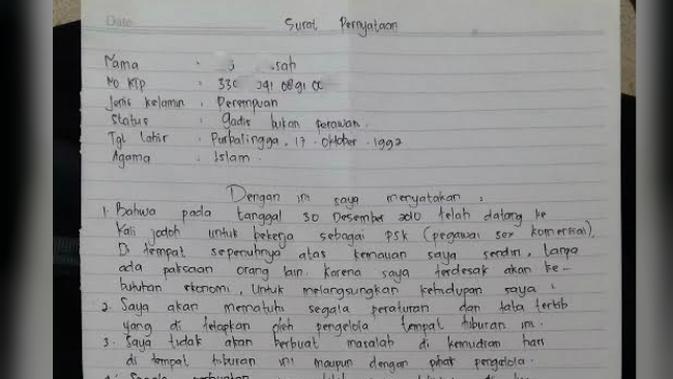 Date
Surat Pernyataan
Nama : sah
No KTP : 330 241 0891 00
Jenis kelamin : Perempuan
Status : gadis bukan perawan.
Tgl Lahir : Purbalingga, 17 Oktober 1992
Agama : Islam.
Dengan ini saya menyatakan :
1. Bahwa pada tanggal 30 Desember 2010 telah datang ke
Kali jodoh untuk bekerja sebagai PSK (pegawai sex komersial).
Di tempat sepenuhnya atas kemauan saya sendiri, tanpa
ada paksaan orang lain. Karena saya terdesak akan ke-
butuhan ekonomi, untuk melangsungkan kehidupan saya.
2. Saya akan mematuhi segala peraturan dan tata tertib
yang di tetapkan oleh pengelola tempat hiburan ini.
3. Saya tidak akan berbuat masalah di kemudian hari
di tempat hiburan ini maupun dengan pihak pengelola.
4. Segala